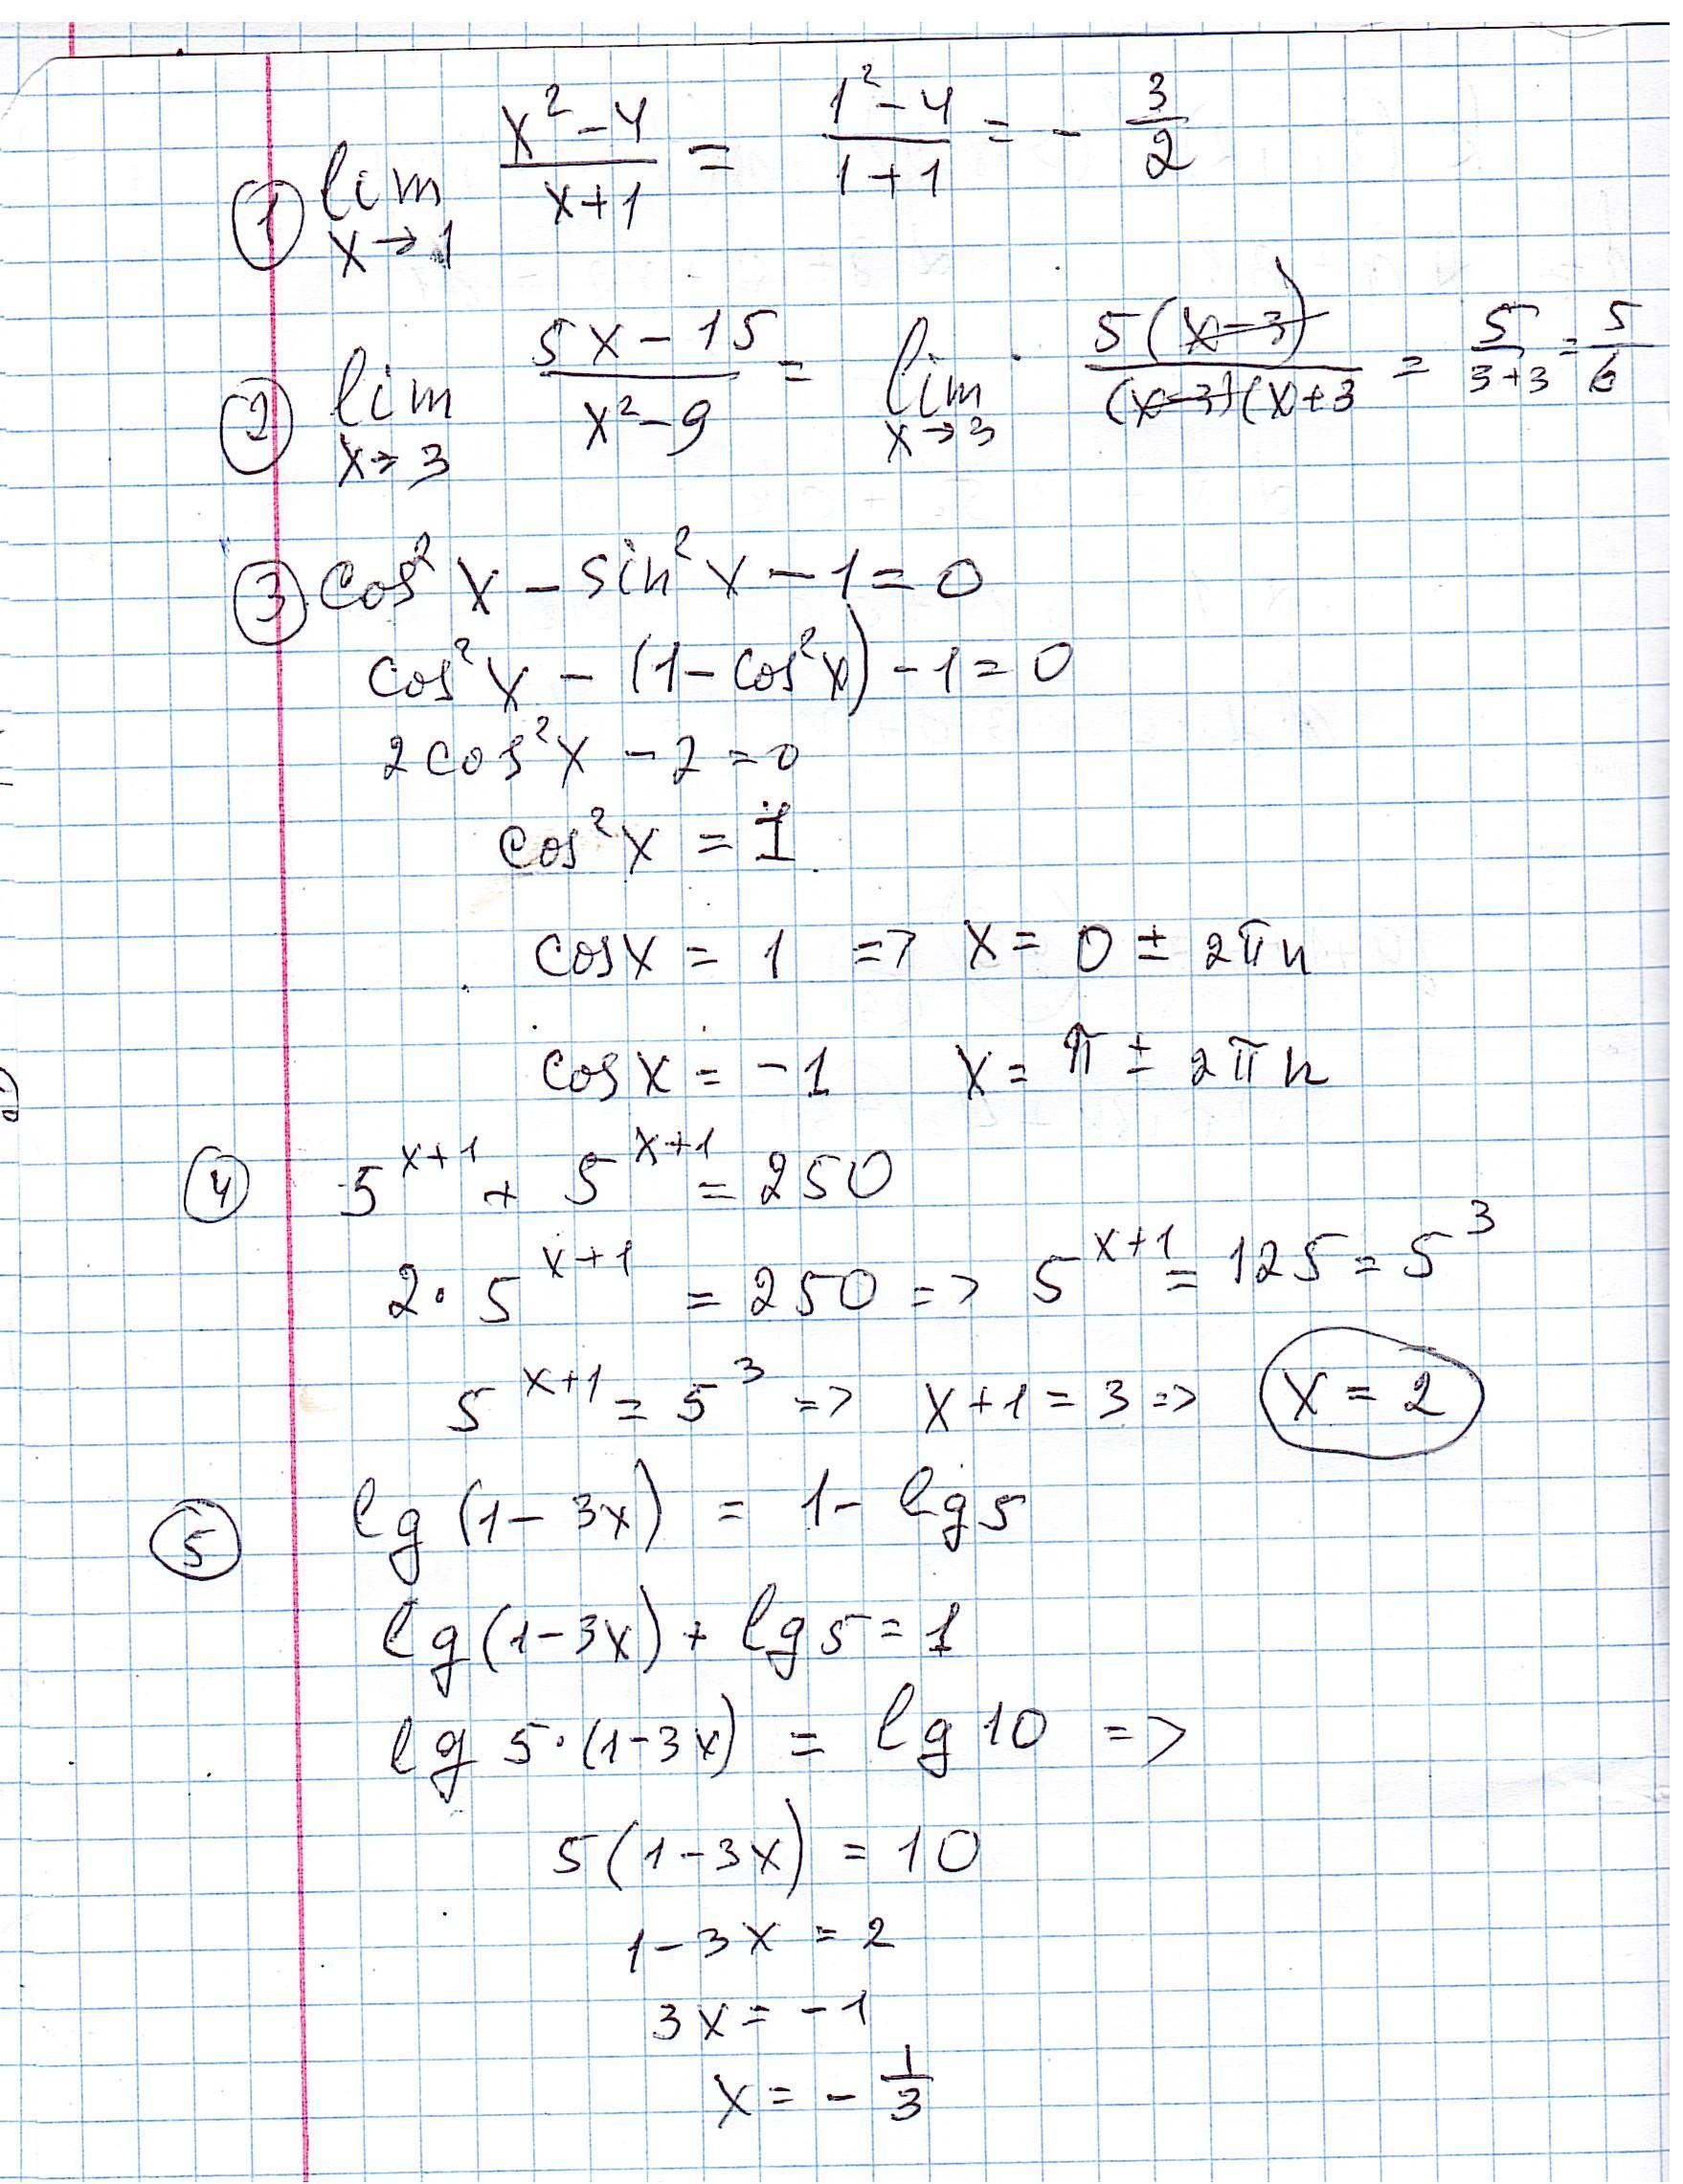 ① lim x→1 (x²-4)/(x+1) = (1²-4)/(1+1) = - 3/2
② lim x→3 (5x-15)/(x²-9) = lim x→3 5(x-3)/(x-3)(x+3 = 5/(3+3) = 5/6
③ cos²x - sin²x - 1 = 0
cos²x - (1-cos²x) - 1 = 0
2cos²x - 2 = 0
cos²x = 1
cosx = 1 => x = 0 ± 2πn
cosx = -1 x = π ± 2πn
④ 5^(x+1) + 5^(x+1) = 250
2·5^(x+1) = 250 => 5^(x+1) = 125 = 5³
5^(x+1) = 5³ => x+1 = 3 => x = 2
⑤ lg(1-3x) = 1- lg5
lg(1-3x) + lg5 = 1
lg 5·(1-3x) = lg10 =>
5(1-3x) = 10
1-3x = 2
3x = -1
x = - 1/3